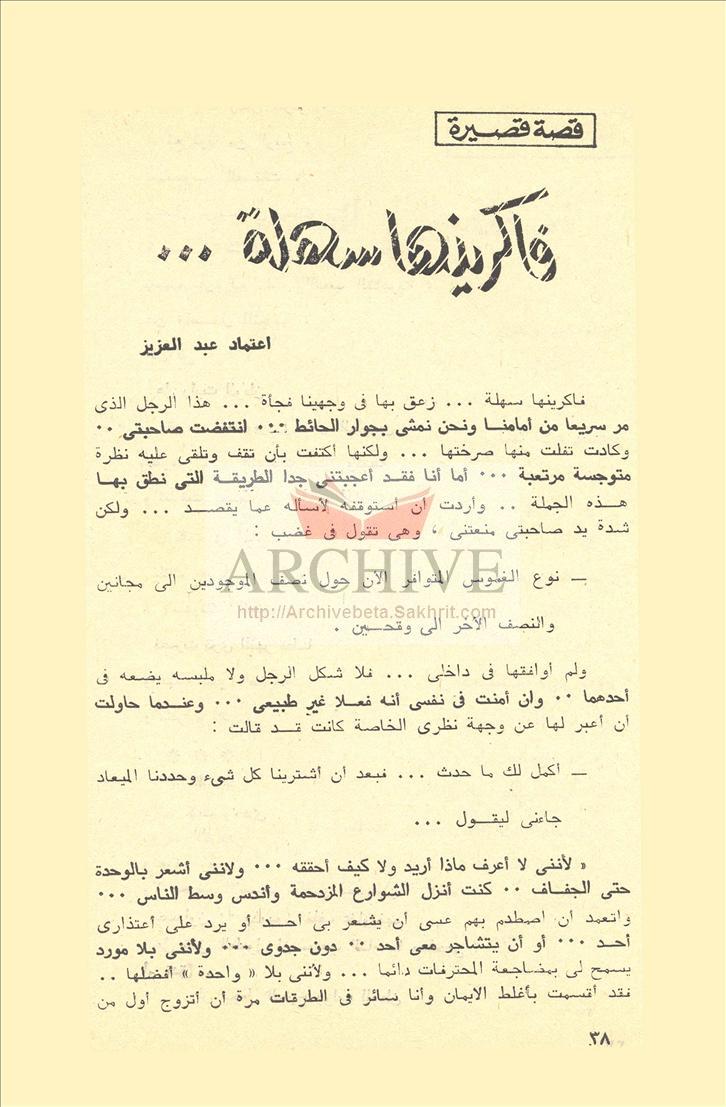 قصة قصيرة
فاكرينها سهلة ...
اعتماد عبد العزيز
فاكرينها سهلة ... زعق بها فى وجهينا فجأة ... هذا الرجل الذى
مر سريعا من أمامنا ونحن نمشى بجوار الحائط ... انتفضت صاحبتى ..
وكادت تفلت منها صرختها ... ولكنها أكتفت بأن تقف وتلقى عليه نظرة
متوجسة مرتعبة ... أما أنا فقد أعجبتنى جدا الطريقة التى نطق بها
هذه الجملة .. وأردت أن أستوقفه لأسأله عما يقصد ... ولكن
شدة يد صاحبتى منعتنى ، وهى تقول فى غضب :
ARCHIVE
— نوع الغموس المتوافر الآن حول نصف الموجودين الى مجانين
http://Archivebeta.Sakhrit.com
والنصف الآخر الى وقحين .
ولم أوافقها فى داخلى ... فلا شكل الرجل ولا ملبسه يضعه فى
أحدهما .. وان أمنت فى نفسى أنه فعلا غير طبيعى ... وعندما حاولت
أن أعبر لها عن وجهة نظرى الخاصة كانت قد قالت :
— أكمل لك ما حدث ... فبعد أن أشترينا كل شىء وحددنا الميعاد
جاءنى ليقول ...
« لأننى لا أعرف ماذا أريد ولا كيف أحققه ... ولاننى أشعر بالوحدة
حتى الجفاف .. كنت أنزل الشوارع المزدحمة وأندس وسط الناس ...
واتعمد ان اصطدم بهم عسى أن يشعر بى أحد أو يرد على أعتذارى
أحد ... أو أن يتشاجر معى أحد .. دون جدوى ... ولأننى بلا مورد
يسمح لى بمضاجعة المحترفات دائما ... ولأننى بلا « واحدة » أفضلها ..
فقد أقسمت بأغلط الايمان وأنا سائر فى الطرقات مرة أن أتزوج أول من
٣٨